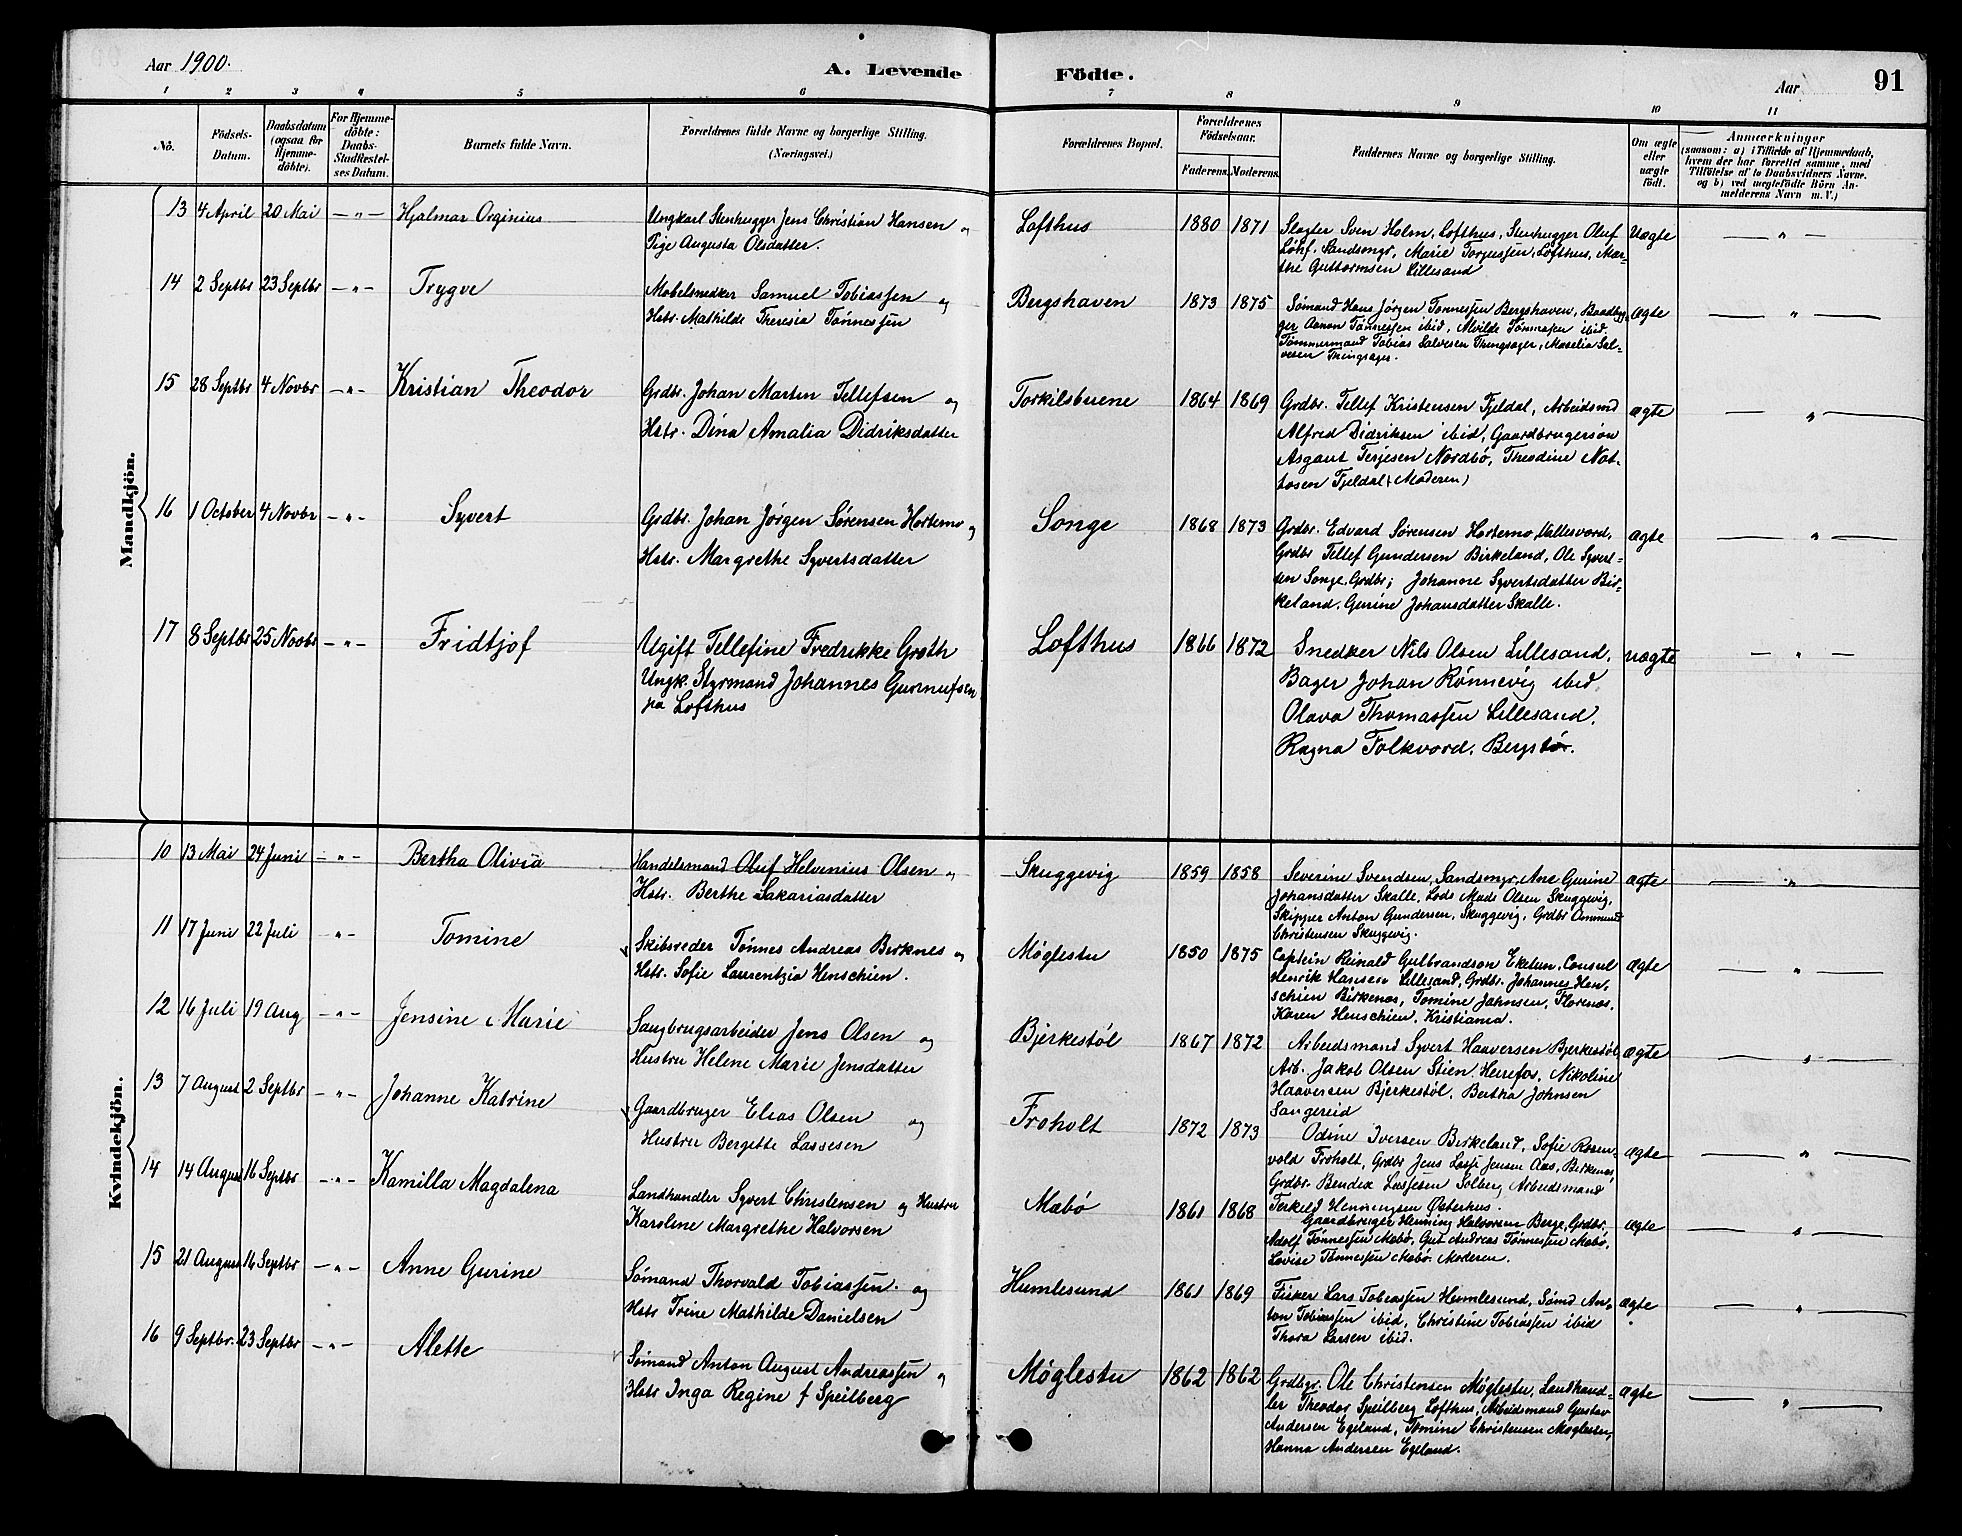 Aar 1900.
A. Levende Födte.
Aar
91
1 2 3 4 5 6 7 8 9 10 11
No.
Födsels-Datum.
Daabsdatum (ogsaa for Hjemme-döbte).
For Hjemme-döbte: Daabs-Stadfæstel-ses Datum.
Barnets fulde Navn.
Forældrenes fulde Navne og borgerlige Stilling.
(Næringsvei.)
Forældrenes Bopæl.
Forældrenes Födselsaar.
Faderens. Moderens.
Faddernes Navne og borgerlige Stilling.
Om ægte eller uægte födt.
Anmærkninger
(saasom: a) i Tilfælde af Hjemmedaab,
hvem der har forrettet samme, med
Tilföielse af to Daabsvidners Navne.
og b) ved uægtefödte Börn An-
melderens Navn m. V.)
Mandkjön.
13 4 April 20 Mai — " — Hjalmar Orginius
Ungkarl Stenhugger Jens Christian Hansen og
Pige Augusta Olsdatter.
Lofthus 1880 1871
Slagter Sven Holm, Lofthus, Stenhugger Oluf
Sandsmyr, Marie Torjussen, Lofthus, Mar-
the Guttormsen Lillesand
Uægte — " —
14 2 Septbr 23 Septbr — " — Trygve
Møbelsnedker Samuel Tobiassen og
Hstr. Mathilde Theresia Tønnessen
Bergshaven 1873 1875
Sømand Hans Jørgen Tønnessen Bergshaven, Baadbyg-
ger Aanon Tønnessen ibid, Alvilde Tønnessen ibid.
Tømmermand Tobias Salvesen Thingsager, Maselia Sal-
vesen Thingsager.
ægte — " —
15 28 Septbr 4 Novbr — " — Kristian Theodor
Grdbr. Johan Martin Tellefsen og
Hstr. Dina Amalia Didriksdatter
Torkilsbuene 1864 1869
Grdbr. Tellef Kristensen Fjeldal, Arbeidsmd
Alfred Didriksen ibid, Gaardbrugersøn
Asgaut Terjesen Nordbø, Theodine Not-
tosen Fjeldal (Moderen)
ægte — " —
16 1 October 4 Novbr — " — Syvert
Grdbr. Johan Jørgen Sørensen Hortemo og
Hstr. Margrethe Syvertsdatter
Songe 1868 1873
Grdbr. Edvard Sørensen Hortemo, Vallesverd,
Grdbr Tellef Gundersen Birkeland, Ole Syvert-
sen Songe, Grdbr; Johanne Syvertsdatter Bir-
keland, Gurine Johansdatter Skalle.
ægte — " —
17 8 Septbr 25 Novbr — " — Fridtjof
Ugift Tellefine Fredrikke Groth
Ungk. Styrmand Johannes Gunnufsen
pa Lofthus
Lofthus 1866 1872
Snedker Nils Olsen Lillesand,
Bager Johan Rønnevig ibid
Olava Thomassen Lillesand,
Ragna Folkvord, Bergstø.
uægte — " —
Kvindekjön.
10 13 Mai 24 Juni — " — Bertha Olivia
Handelsmand Oluf Helvenius Olsen og
Hstr. Berthe Sakariasdatter
Skuggevig 1859 1858
Severine Svendsen, Sandsmyr, Ane Gurine
Johansdatter Skalle, Lods Mads Olsen Skuggevig,
Skipper Anton Gundersen, Skuggevig, Grdbr Ommund
Christensen Skuggevig.
ægte — " —
11 17 Juni 22 Juli — " — Tomine
Skibsreder Tønnes Andreas Birknes og
Hstr. Sofie Laurentzia Henschien.
Møglestu 1850 1875
Captein Reinald Gulbrandson Eketun, Consul
Henrik Hansen Lillesand, Grdbr. Johannes Hen-
schien Birkenes, Tomine Jahnsen, Florenes,
Karen Henschien, Kristiania.
ægte — " —
12 16 Juli 19 Aug — " — Jensine Marie
Saugbrugsarbeider Jens Olsen og
Hustru Helene Marie Jensdatter
Bjerkestøl 1867 1872
Arbeidsmand Syvert Haaversen Bjerkestøl,
Arb. Jakob Olsen Stien, Herefos, Nikoline
Haaversen Bjerkestøl, Bertha Johnsen
Sangereid
ægte — " —
13 7 August 2 Septbr — " — Johanne Katrine
Gaardbruger Elias Olsen og
Hustru Bergitte Lassesen
Froholt 1872 1873
Odine Iversen Birkeland, Sofie Rosen-
vold Froholt, Grdbr Jens Lasse Jensen Aas, Birkenes,
Grdbr. Bendix Lassesen Solberg, Arbeidsmand
Terkild Henningsen Østerhus.
ægte — " —
14 14 August 16 Septbr — " — Kamilla Magdalena
Landhandler Syvert Christensen og Hustru
Karoline Margrethe Halvorsen
Mæbø 1861 1868
Gaardbruger Henning Halvorsen Berge, Grdbr.
Adolf Tønnessen Mæbø, Gut Andreas Tønnessen Mæbø,
Lovise Tønnessen Mæbø. Moderen.
ægte — " —
15 21 August 16 Septbr — " — Anne Gurine
Sømand Thorvald Tobiassen og
Hstr Trine Mathilde Danielsen
Humlesund 1861 1869
Fisker Lars Tobiassen Humlesund, Sømd An-
ton Tobiassen ibid, Christine Tobiassen ibid
Thora Larsen ibid.
ægte — " —
16 9 Septbr. 23 Septbr — " — Alette
Sømand Anton August Andreassen og
Hstr Inga Regine f Speilberg
Møglestu 1862 1862
Grdbgr. Ole Christensen Møglestu, Landhand-
ler Theodor Speilberg Lofthus, Arbeidsmand Gustav
Andersen Egeland, Tomine Christensen Møglestu,
Hanna Andersen Egeland.
ægte — " —